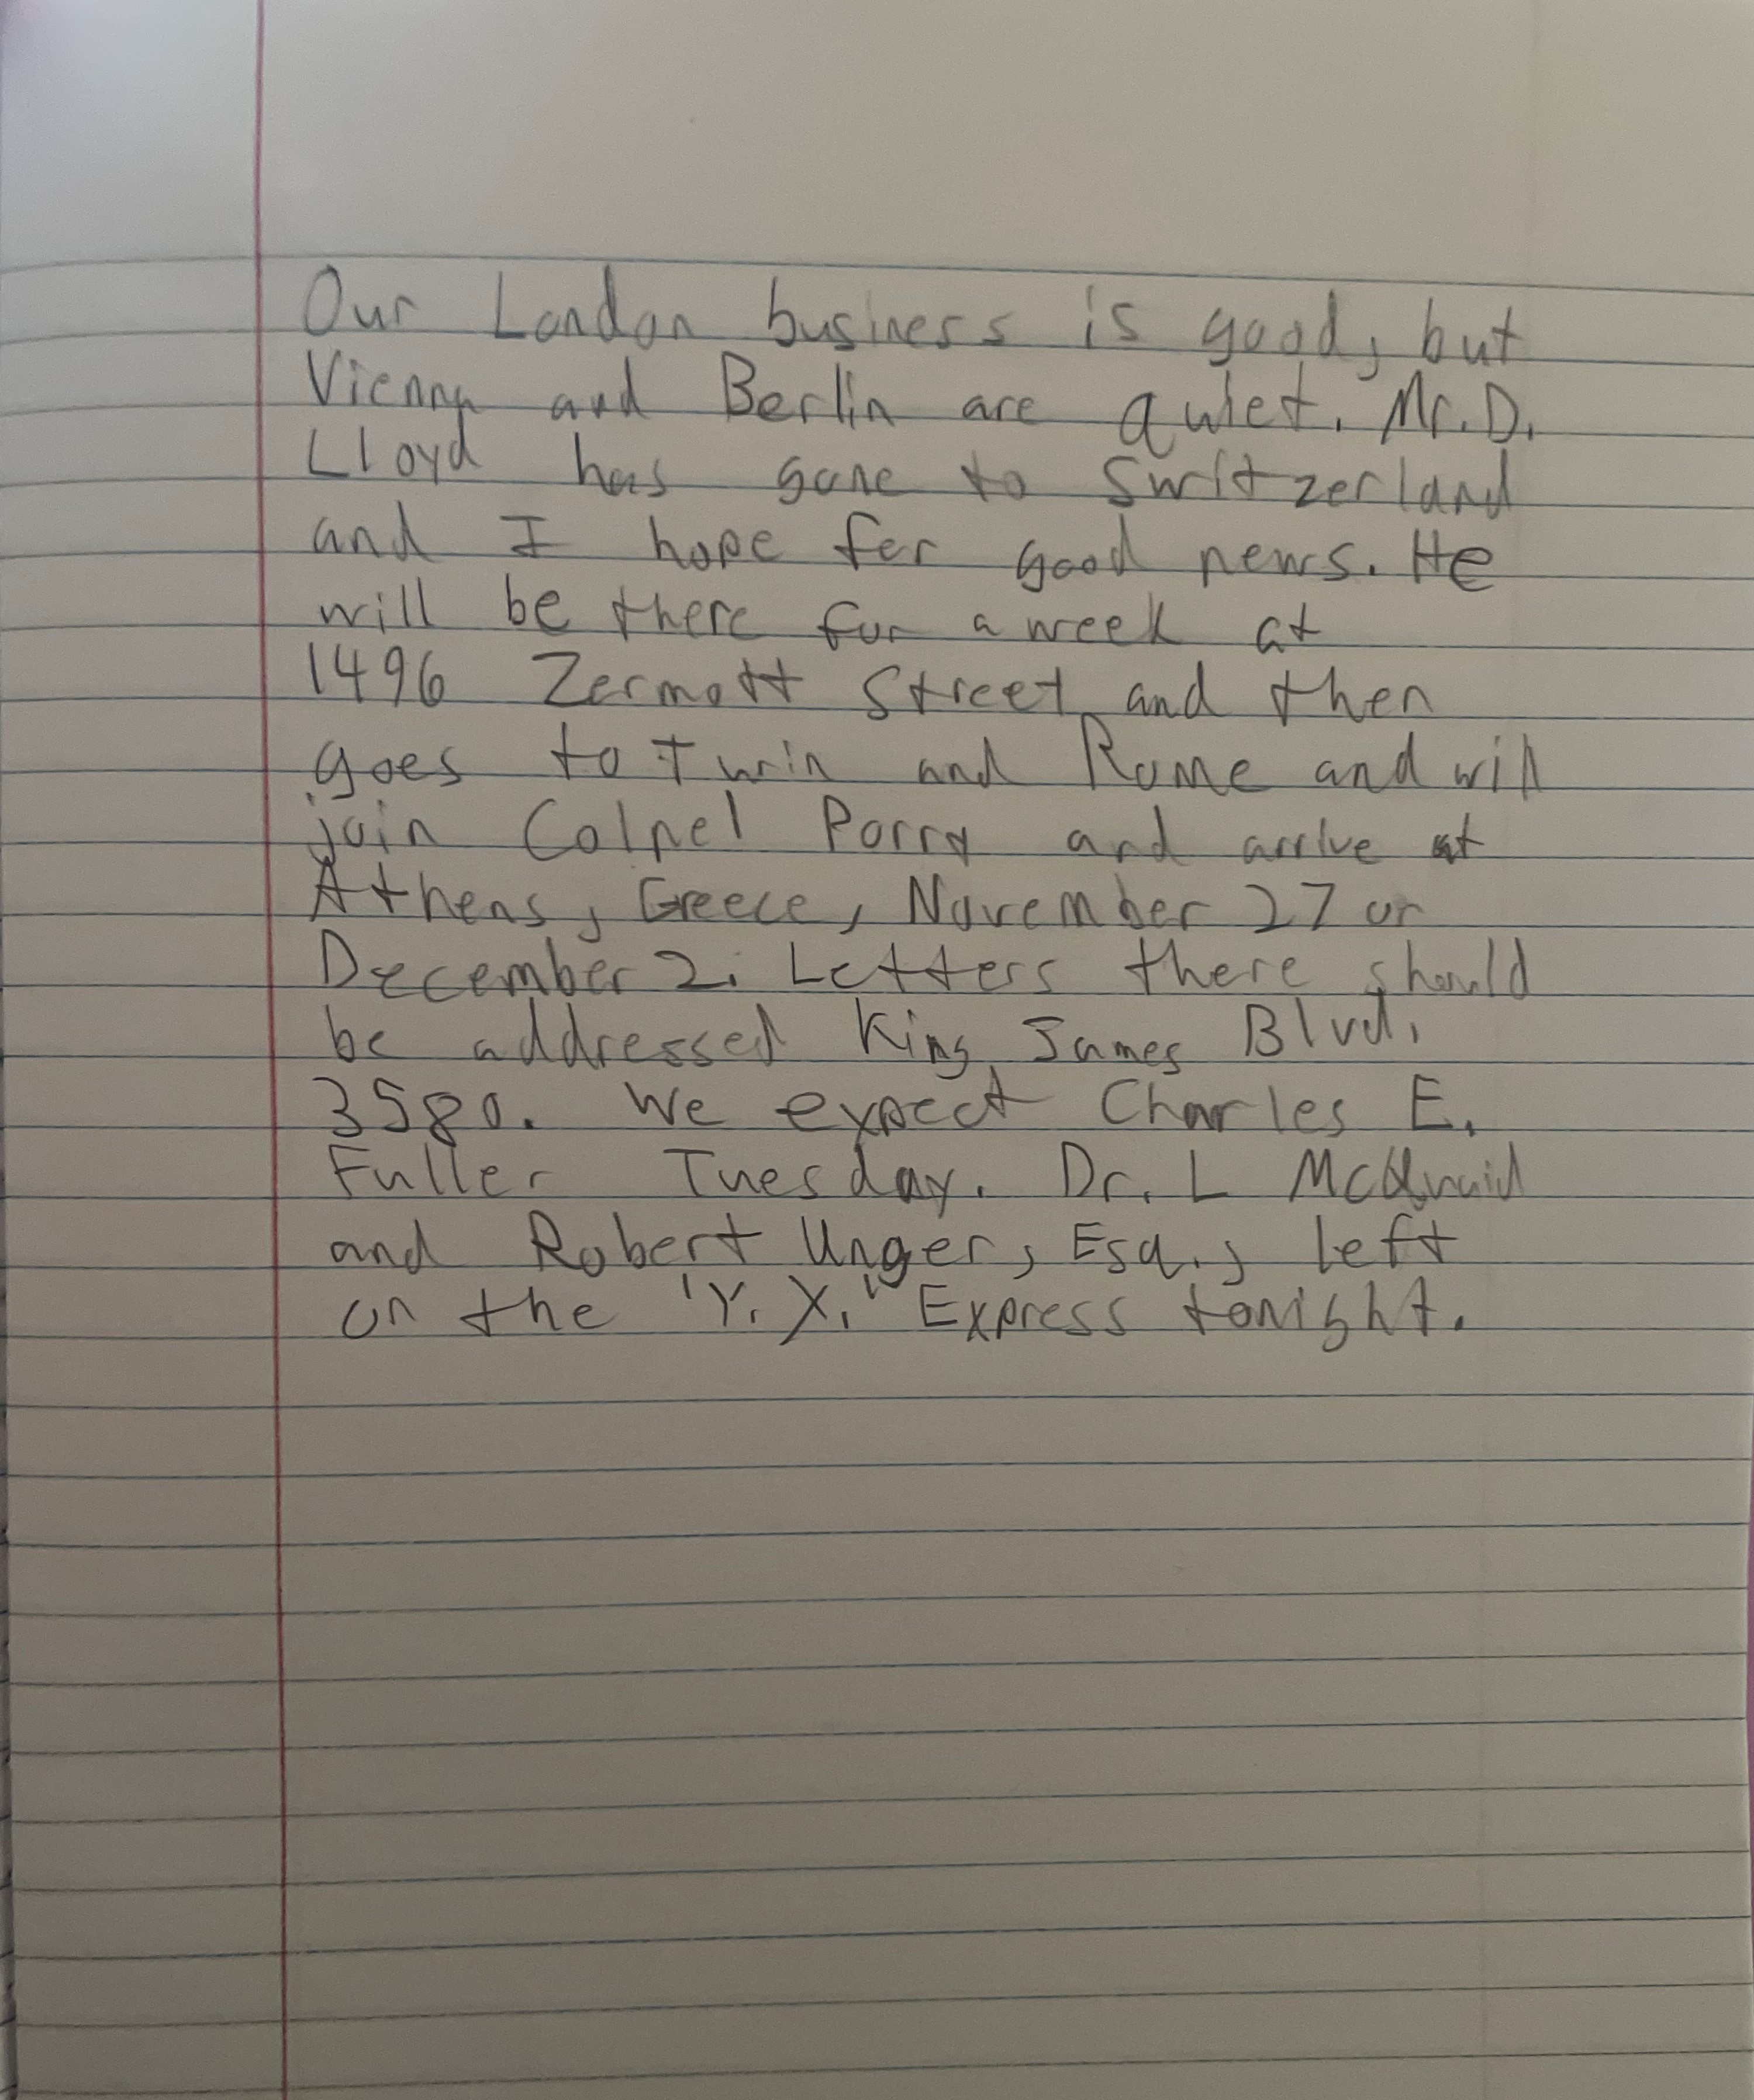 Our London business is good, but
Vienna and Berlin are quiet. Mr. D.
Lloyd has gone to Switzerland
and I hope for good news. He
will be there for a week at
1496 Zermott Street and then
goes to Turin and Rome and will
join Colnel Parry and arrive at
Athens, Greece, November 27 or
December 2. Letters there should
be addressed King James Blvd.
3580. We expect Charles E.
Fuller Tuesday. Dr. L McQuaid
and Robert Unger, Esq., left
on the 'Y. X." Express tonight.